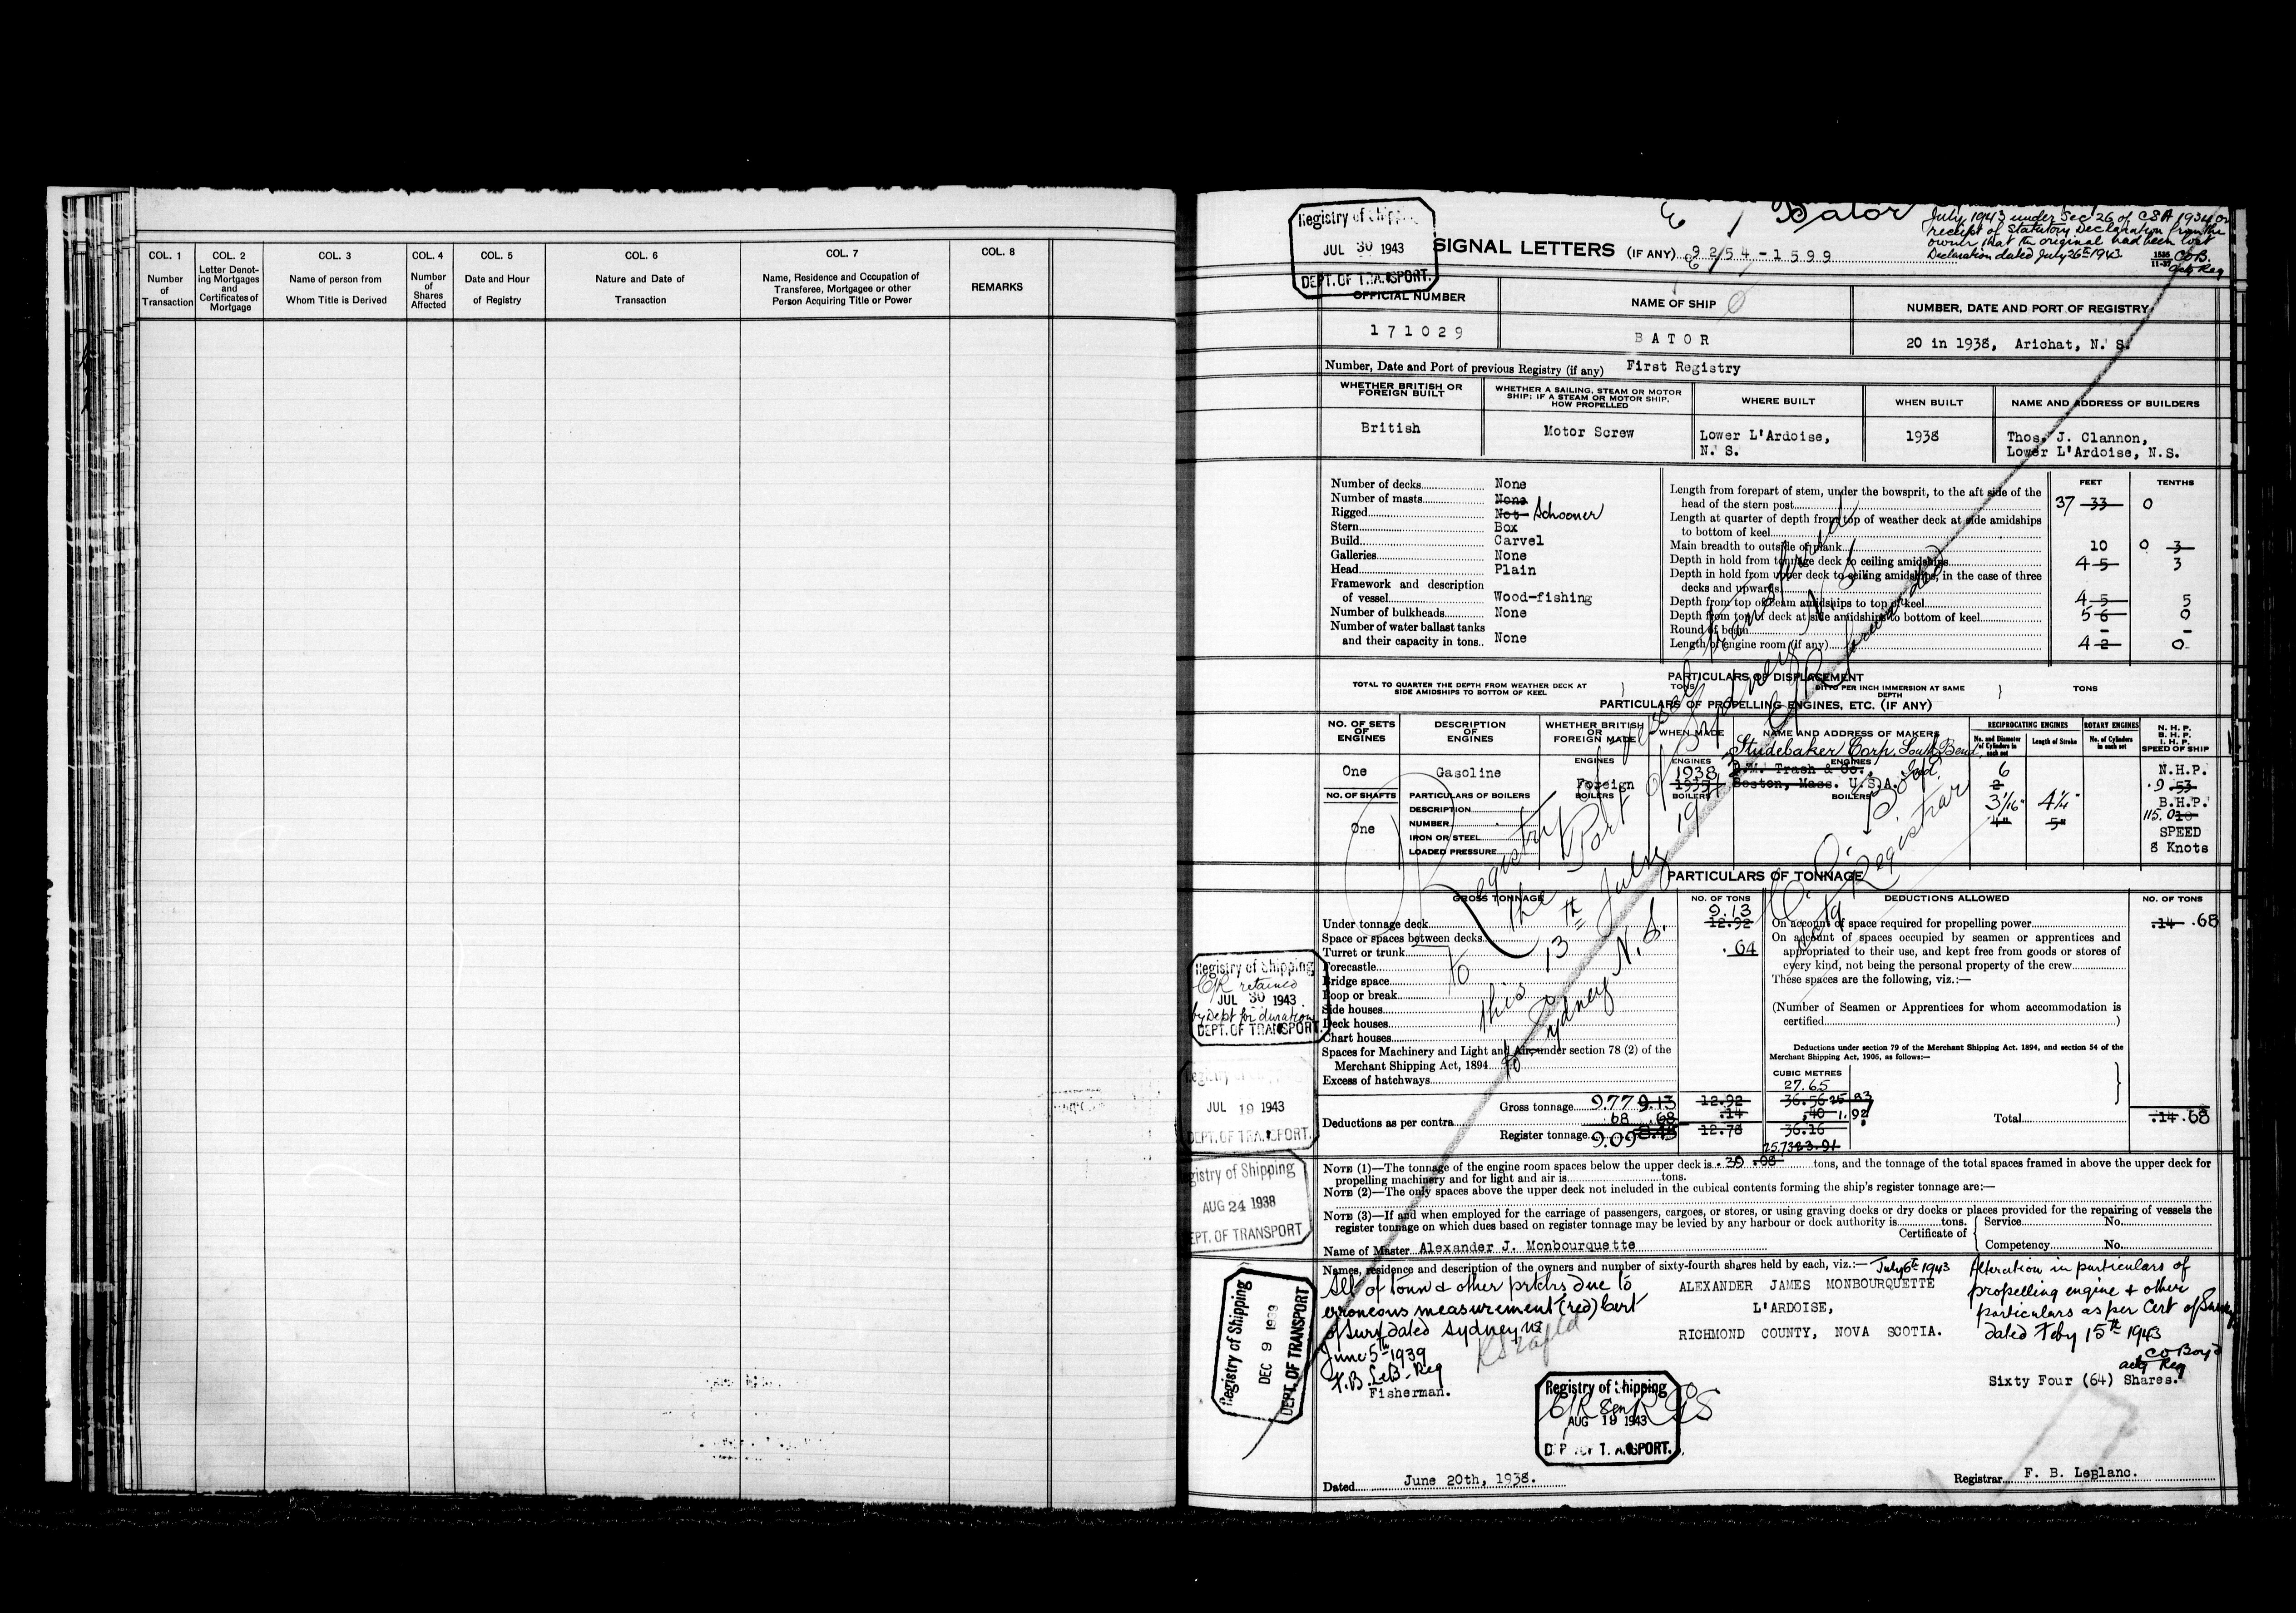 COL. 1
Number
of
Transaction
COL. 2
Letter Denot-
ing Mortgages
and
Certificates of
Mortgage
COL. 3
Name of person from
Whom Title is Derived
COL. 4
Number
of
Shares
Affected
COL. 5
Date and Hour
of Registry
COL. 6
Nature and Date of
Transaction
COL. 7
Name, Residence and Occupation of
Transferee, Mortgagee or other
Person Acquiring Title or Power
COL. 8
REMARKS
Registry of Shipping
JUL 30 1943
DEPT. OF TRANSPORT.
Bator
July, 1943 under Sec 26 of CSA 1934 on
receipt of Statutory Declaration from the
owner that the original had been lost
Declaration dated July 26th 1943
COB.
actg Reg
SIGNAL LETTERS (IF ANY) 9254-1599
OFFICIAL NUMBER
171029
NAME OF SHIP
BATOR
NUMBER, DATE AND PORT OF REGISTRY
20 in 1938, Arichat, N. S.
Number, Date and Port of previous Registry (if any) First Registry
WHETHER BRITISH OR
FOREIGN BUILT
British
WHETHER A SAILING, STEAM OR MOTOR
SHIP; IF A STEAM OR MOTOR SHIP,
HOW PROPELLED
Motor Screw
WHERE BUILT
Lower L'Ardoise,
N. S.
WHEN BUILT
1938
NAME AND ADDRESS OF BUILDERS
Thos. J. Clannon,
Lower L'Ardoise, N.S.
Number of decks None
Number of masts None
Rigged Not Schooner
Stern Box
Build Carvel
Galleries None
Head Plain
Framework and description
of vessel Wood-fishing
Number of bulkheads None
Number of water ballast tanks
and their capacity in tons None
FEET TENTHS
Length from forepart of stem, under the bowsprit, to the aft side of the
head of the stern post 37 33 0
Length at quarter of depth from top of weather deck at side amidships
to bottom of keel
Main breadth to outside of plank 10 0 3
Depth in hold from tonnage deck to ceiling amidships 4 5 3
Depth in hold from upper deck to ceiling amidships, in the case of three
decks and upwards
Depth from top of beam amidships to top of keel 4 5 5
Depth from top of deck at side amidships to bottom of keel 5 6 0
Round of beam - -
Length of engine room (if any) 4 2 0
PARTICULARS OF DISPLACEMENT
TOTAL TO QUARTER THE DEPTH FROM WEATHER DECK AT
SIDE AMIDSHIPS TO BOTTOM OF KEEL
TONS
DITTO PER INCH IMMERSION AT SAME
DEPTH
TONS
PARTICULARS OF PROPELLING ENGINES, ETC. (IF ANY)
NO. OF SETS
OF
ENGINES
One
NO. OF SHAFTS
One
DESCRIPTION
OF
ENGINES
Gasoline
PARTICULARS OF BOILERS
DESCRIPTION
NUMBER
IRON OR STEEL
LOADED PRESSURE
WHETHER BRITISH
OR
FOREIGN MADE
ENGINES
Foreign
BOILERS
WHEN MADE
ENGINES
1938
BOILERS
NAME AND ADDRESS OF MAKERS
Studebaker Corp. South Bend
Ind.
ENGINES
Boston, Mass. U.S.A.
BOILERS
RECIPROCATING ENGINES
No. and Diameter
of Cylinders in
each set
6
2
3 1/16"
4"
Length of Stroke
4 1/4"
5"
ROTARY ENGINES
No. of Cylinders
in each set
N. H. P.
B. H. P.
I. H. P.
SPEED OF SHIP
N.H.P.
.9 53
B.H.P.
115.0 10
SPEED
8 Knots
Registry of vessel transferred
to the Port of Sydney N.S.
this 13th July 1944
to Sydney N.S.
C. O. Boyd
actg Registrar
PARTICULARS OF TONNAGE
GROSS TONNAGE
NO. OF TONS
9.13
Under tonnage deck 12.92
Space or spaces between decks
Turret or trunk .64
Forecastle
Bridge space
Poop or break
Side houses
Deck houses
Chart houses
Spaces for Machinery and Light and Air, under section 78 (2) of the
Merchant Shipping Act, 1894
Excess of hatchways
Gross tonnage 9.77 9.13 12.92
Deductions as per contra 68 .68 .14
Register tonnage 9.09 8.45 12.78
DEDUCTIONS ALLOWED
NO. OF TONS
On account of space required for propelling power .14 .68
On account of spaces occupied by seamen or apprentices and
appropriated to their use, and kept free from goods or stores of
every kind, not being the personal property of the crew
These spaces are the following, viz.:—
(Number of Seamen or Apprentices for whom accommodation is
certified )
Deductions under section 79 of the Merchant Shipping Act. 1894, and section 54 of the
Merchant Shipping Act, 1906, as follows:—
CUBIC METRES
27.65
36.56 25.83
.40 1.92
36.16
25.73 23.91
Total .14 .68
NOTE (1)—The tonnage of the engine room spaces below the upper deck is .39 .08 tons, and the tonnage of the total spaces framed in above the upper deck for
propelling machinery and for light and air is tons.
NOTE (2)—The only spaces above the upper deck not included in the cubical contents forming the ship's register tonnage are:—
NOTE (3)—If and when employed for the carriage of passengers, cargoes, or stores, or using graving docks or dry docks or places provided for the repairing of vessels the
register tonnage on which dues based on register tonnage may be levied by any harbour or dock authority is tons.
Certificate of { Service No.
Competency No.
Name of Master Alexander J. Monbourquette
Names, residence and description of the owners and number of sixty-fourth shares held by each, viz.:—
All of tonn & other prtclrs due to
erroneous measurement (red) Cert
of Surv dated Sydney NS
June 5th 1939
F.B. LeB. Reg
Fisherman.
ALEXANDER JAMES MONBOURQUETTE
L'ARDOISE,
RICHMOND COUNTY, NOVA SCOTIA.
July 6th 1943
Alteration in particulars of
propelling engine & other
particulars as per Cert of Survey
dated Feby 15th 1943
CO Boyd
actg Reg
Sixty Four (64) Shares.
Registry of Shipping
CR retained
JUL 30 1943
by Dept for duration
DEPT. OF TRANSPORT.
JUL 19 1943
DEPT. OF TRANSPORT.
Registry of Shipping
AUG 24 1938
DEPT. OF TRANSPORT
Registry of Shipping
DEC 9 1939
DEPT. OF TRANSPORT
Registry of Shipping
AUG 19 1943
DEPT. OF TRANSPORT.
Dated June 20th, 1938.
Registrar F. B. LeBlanc.